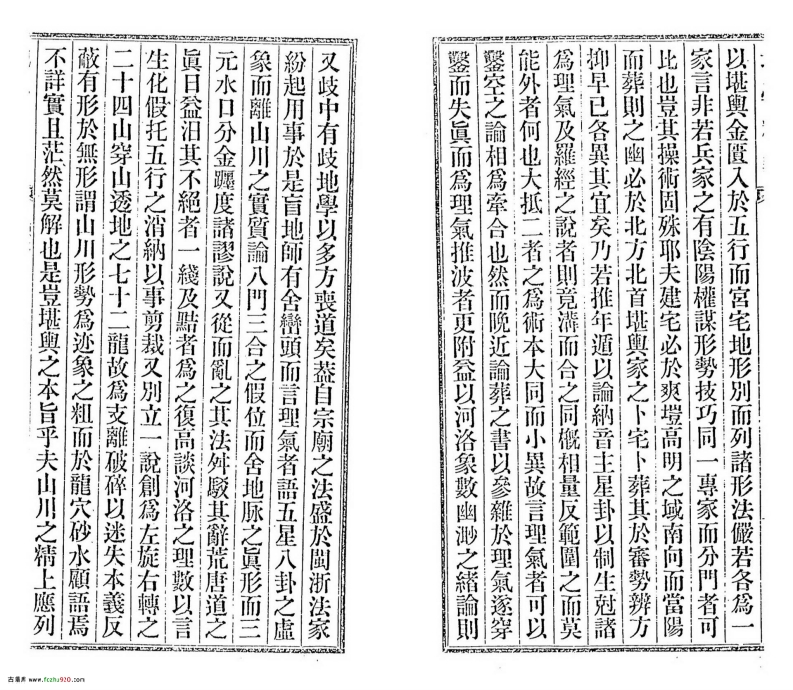 以堪輿金匱入於五行而宮宅地形別而列諸形法儼若各爲一
家言非若兵家之有陰陽權謀形勢技巧同一專家而分門者可
比也豈其操術固殊耶夫建宅必於爽塏高明之域南向而當陽
而葬則之幽必於北方北首堪輿家之卜宅卜葬其於審勢辨方
抑早已各異其宜矣乃若推年遁以論納音主星卦以制生尅諸
爲理氣及羅經之說者則竟溝而合之同概相量反範圍之而莫
能外者何也大抵二者之爲術本大同而小異故言理氣者可以
鑿空之論相爲牽合也然而晚近論葬之書以參雜於理氣遂穿
鑿而失眞而爲理氣推波者更附益以河洛象數幽渺之緒論則
又歧中有歧地學以多方喪道矣葢自宗廟之法盛於閩浙法家
紛起用事於是盲地師有舍巒頭而言理氣者語五星八卦之虛
象而離山川之實質論八門三合之假位而舍地脉之眞形而三
元水口分金躔度諸謬說又從而亂之其法舛駁其辭荒唐道之
眞日益汨其不絕者一綫及黠者爲之復高談河洛之理數以言
生化假托五行之消納以事剪裁又別立一說創爲左旋右轉之
二十四山穿山透地之七十二龍故爲支離破碎以迷失本義反
蔽有形於無形謂山川形勢爲迹象之粗而於龍穴砂水願語焉
不詳實且茫然莫解也是豈堪輿之本旨乎夫山川之精上應列
古籍库 www.fczhu920.com